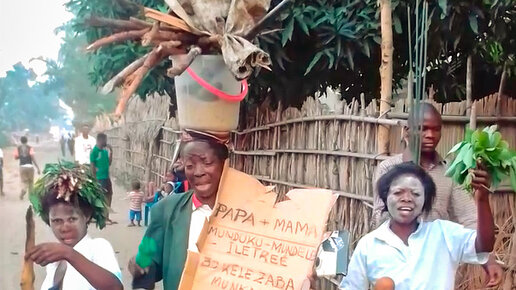 PAPA + MAMA
MUNDUKU-MUNDELE
ILETREE
BO KELE ZABA
MUNK